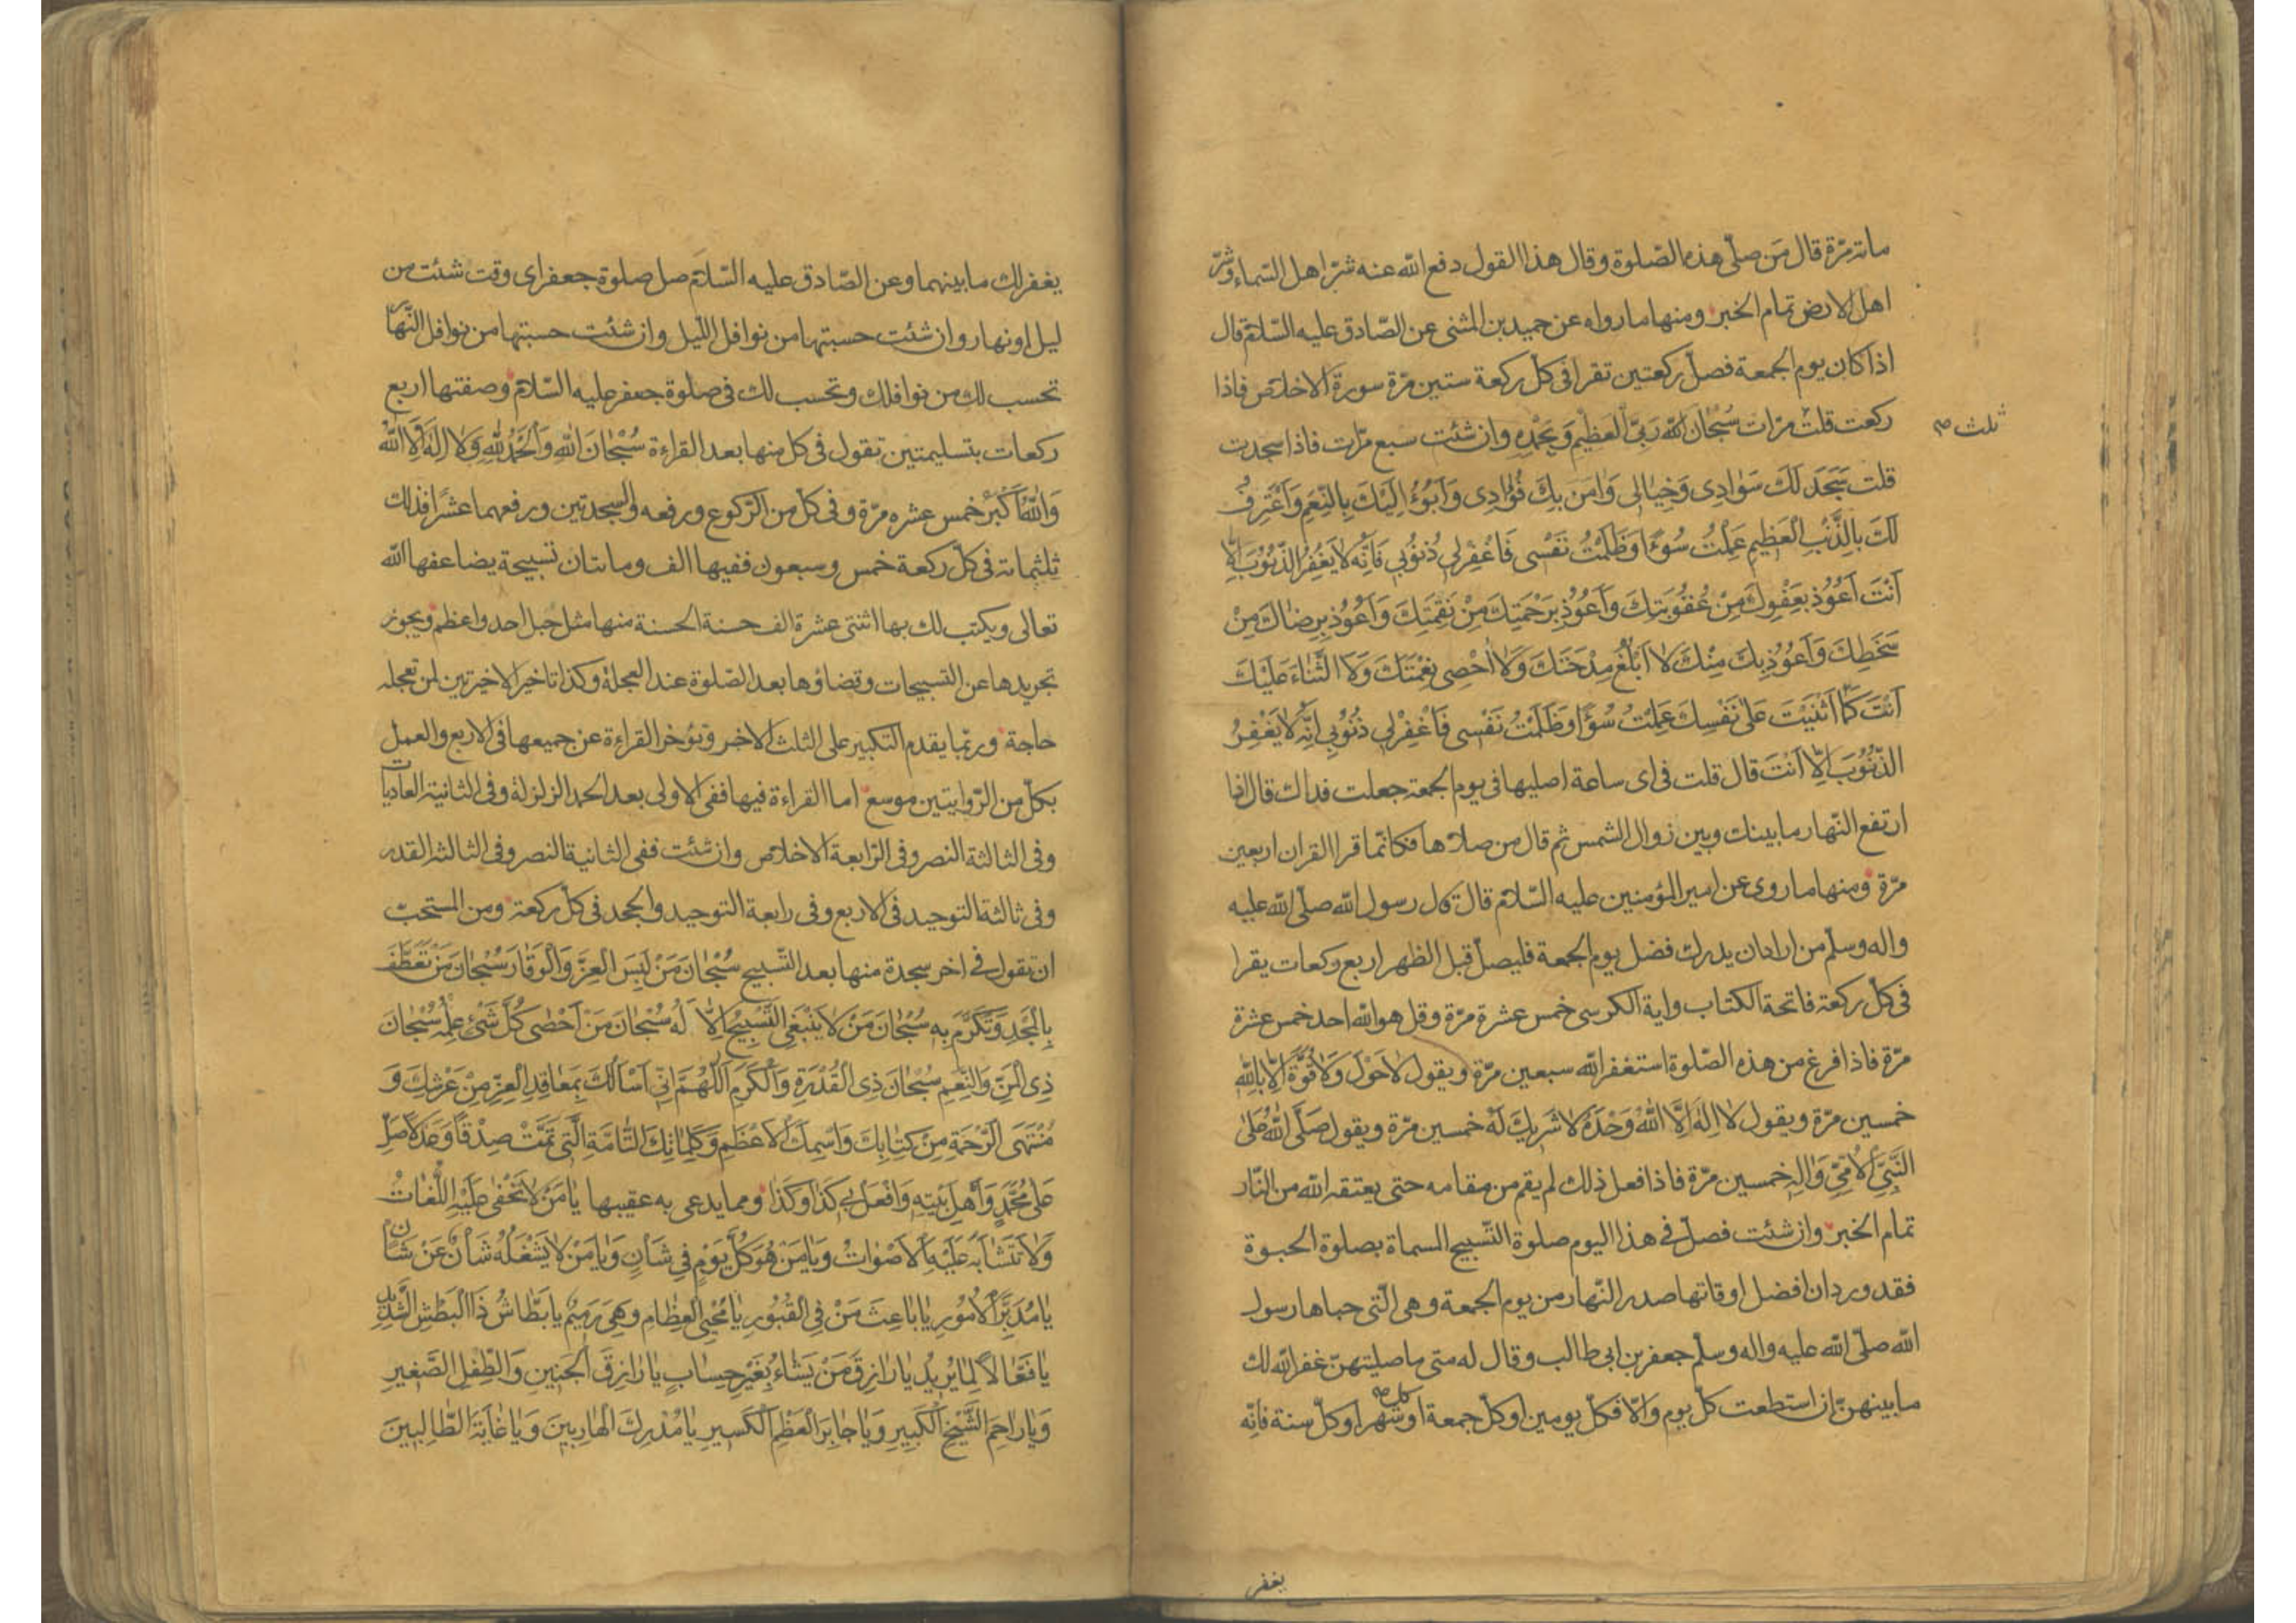 مائة مرّة قال مَن صلّى هذه الصّلوة وقال هذا القول دفع الله عنه شرّ اهل السّماء وشرّ
اهل الارض تمام الخبر ومنها ما رواه عن حميد بن المثنى عن الصّادق عليه السّلام قال
اذا كان يوم الجمعة فصلّ ركعتين تقرا فى كلّ ركعة ستين مرّة سورة الاخلاص فاذا
ركعت قلت مرّات سُبْحٰانَ اللهِ رَبِّىَ الْعَظيْمِ وَبِحَمْدِهِ وان شئت سبع مرّات فاذا سجدت
ثلث صح
قلت سَجَدَ لَكَ سَوٰادِى وَخِيٰالِى وَاٰمَنَ بِكَ فُؤٰادِى وَاَبُوْءُ اِلَيْكَ بِالنِّعَمِ وَاَعْتَرِفُ
لَكَ بِالذَّنْبِ الْعَظِيمِ عَمِلْتُ سُوْءًا وَظَلَمْتُ نَفْسِى فَاغْفِرْلِى ذُنُوْبِى فَاِنَّهُ لاٰ يَغْفِرُ الذُّنُوْبَ اِلاّٰ
اَنْتَ اَعُوْذُ بِعَفْوِكَ مِنْ عُقُوْبَتِكَ وَاَعُوْذُ بِرَحْمَتِكَ مِنْ نَقِمَتِكَ وَاَعُوْذُ بِرِضٰاكَ مِنْ
سَخَطِكَ وَاَعُوْذُ بِكَ مِنْكَ لاٰ اَبْلُغُ مِدْحَتَكَ وَلاٰ اُحْصِى نِعْمَتَكَ وَلاَ الثَّنٰاءَ عَلَيْكَ
اَنْتَ كَمٰا اَثْنَيْتَ عَلىٰ نَفْسِكَ عَمِلْتُ سُوْءًا وَظَلَمْتُ نَفْسِى فَاغْفِرْلِى ذُنُوْبِى اِنَّهُ لاٰ يَغْفِرُ
الذُّنُوْبَ اِلاّٰ اَنْتَ قال قلت فى اى ساعة اصليها فى يوم الجمعة جعلت فداك قال اذا
ارتفع النّهار ما بينك وبين زوال الشمس ثم قال من صلاها فكانّما قرا القران اربعين
مرّة ومنها ما روى عن امير المؤمنين عليه السّلام قال قال رسول الله صلّى الله عليه
واله وسلّم من اراد ان يدرك فضل يوم الجمعة فليصلّ قبل الظهر اربع ركعات يقرا
فى كلّ ركعة فاتحة الكتاب واية الكرسى خمس عشرة مرّة وقل هو الله احد خمس عشرة
مرّة فاذا فرغ من هذه الصّلوة استغفر الله سبعين مرّة ويقول لاٰحَوْلَ وَلاٰ قُوَّةَ اِلاّٰ بِاللهِ
خمسين مرّة ويقول لاٰ اِلٰهَ اِلاَّ اللهُ وَحْدَهُ لاٰ شَرِيْكَ لَهُ خمسين مرّة ويقول صَلَّى اللهُ عَلىٰ
النَّبِىِّ الْاُمِّىِّ وَاٰلِهِ خمسين مرّة فاذا فعل ذلك لم يقم من مقامه حتى يعتقه الله من النّار
تمام الخبر وان شئت فصلّ فى هذا اليوم صلوة التّسبيح المسماة بصلوة الحبوة
فقد ورد ان افضل اوقاتها صدر النّهار من يوم الجمعة وهى الّتى حباها رسول
الله صلّى الله عليه واله وسلّم جعفر بن ابى طالب وقال له متى ما صليتهنّ غفر الله لك
ما بينهنّ ان استطعت كلّ يوم والّا فكلّ يومين او كلّ جمعة او كل صح شهر او كلّ سنة فانّه
يغفر
يغفر لك ما بينهما وعن الصّادق عليه السّلام صل صلوة جعفر اى وقت شئت من
ليل او نهار وان شئت حسبتها من نوافل اللّيل وان شئت حسبتها من نوافل النّهار
تحسب لك من نوافلك وتحسب لك فى صلوة جعفر عليه السّلام وصفتها اربع
ركعات بتسليمتين تقول فى كل منها بعد القراءة سُبْحٰانَ اللهِ وَالْحَمْدُ للهِ وَلاٰ اِلٰهَ اِلاَّ اللهُ
وَاللهُ اَكْبَرُ خمس عشره مرّة وفى كلّ من الرّكوع ورفعه والسجدتين ورفعهما عشرًا فذلك
ثلثمائة فى كلّ ركعة خمس وسبعون ففيها الف ومائتان تسبيحة يضاعفها الله
تعالى ويكتب لك بها اثنتى عشرة الف حسنة الحسنة منها مثل جبل احد واعظم ويجوز
تجريدها عن التسبيحات وقضاؤها بعد الصّلوة عند العجلة وكذا تاخير الاخيرتين لمن تعجله
حاجة وربّما يقدم التكبير على الثلث الاخر وتؤخر القراءة عن جميعها فى الاربع والعمل
بكلّ من الرّوايتين موسع اما القراءة فيها ففى الاولى بعد الحمد الزلزلة وفى الثانية العاديات
وفى الثالثة النصر وفى الرّابعة الاخلاص وان شئت ففى الثانية النصر وفى الثالثة القدر
وفى ثالثة التوحيد فى الاربع وفى رابعة التوحيد والجحد فى كلّ ركعة ومن المستحبّ
ان تقول فى اخر سجدة منها بعد التّسبيح سُبْحٰانَ مَنْ لَبِسَ الْعِزَّ وَالْوَقٰارَ سُبْحٰانَ مَنْ تَعَطَّفَ
بِالْمَجْدِ وَتَكَرَّمَ بِهِ سُبْحٰانَ مَنْ لاٰ يَنْبَغِى التَّسْبِيْحُ اِلاّٰ لَهُ سُبْحٰانَ مَنْ اَحْصٰى كُلَّ شَىْءٍ عِلْمُهُ سُبْحٰانَ
ذِى الْمَنِّ وَالنِّعَمِ سُبْحٰانَ ذِى الْقُدْرَةِ وَالْكَرَمِ اَللّٰهُمَّ اِنِّى اَسْأَلُكَ بِمَعٰاقِدِ الْعِزِّ مِنْ عَرْشِكَ وَ
مُنْتَهَى الرَّحْمَةِ مِنْ كِتٰابِكَ وَاسْمِكَ الْاَعْظَمِ وَكَلِمٰاتِكَ التّٰامَّةِ الَّتِى تَمَّتْ صِدْقًا وَعَدْلًا صَلِّ
عَلىٰ مُحَمَّدٍ وَاَهْلِ بَيْتِهِ وَافْعَلْ بِى كَذٰا وَكَذٰا ومما يدعى به عقيبها يٰا مَنْ لاٰ تَخْفىٰ عَلَيْهِ اللُّغٰاتُ
وَلاٰ تَتَشٰابَهُ عَلَيْهِ الْاَصْوٰاتُ وَيٰا مَنْ هُوَ كُلَّ يَوْمٍ فِى شَأْنٍ وَيٰا مَنْ لاٰ يَشْغَلُهُ شَأْنٌ عَنْ شَأْنٍ
يٰا مُدَبِّرَ الْاُمُوْرِ يٰا بٰاعِثَ مَنْ فِى الْقُبُوْرِ يٰا مُحْيِىَ الْعِظٰامِ وَهِىَ رَمِيْمٌ يٰا بَطّٰاشُ ذَا الْبَطْشِ الشَّدِيْدِ
يٰا فَعّٰالًا لِمٰا يُرِيْدُ يٰا رٰازِقَ مَنْ يَشٰاءُ بِغَيْرِ حِسٰابٍ يٰا رٰازِقَ الْجَنِيْنِ وَالطِّفْلِ الصَّغِيْرِ
وَيٰا رٰاحِمَ الشَّيْخِ الْكَبِيْرِ وَيٰا جٰابِرَ الْعَظْمِ الْكَسِيْرِ يٰا مُدْرِكَ الْهٰارِبِيْنَ وَيٰا غٰايَةَ الطّٰالِبِيْنَ